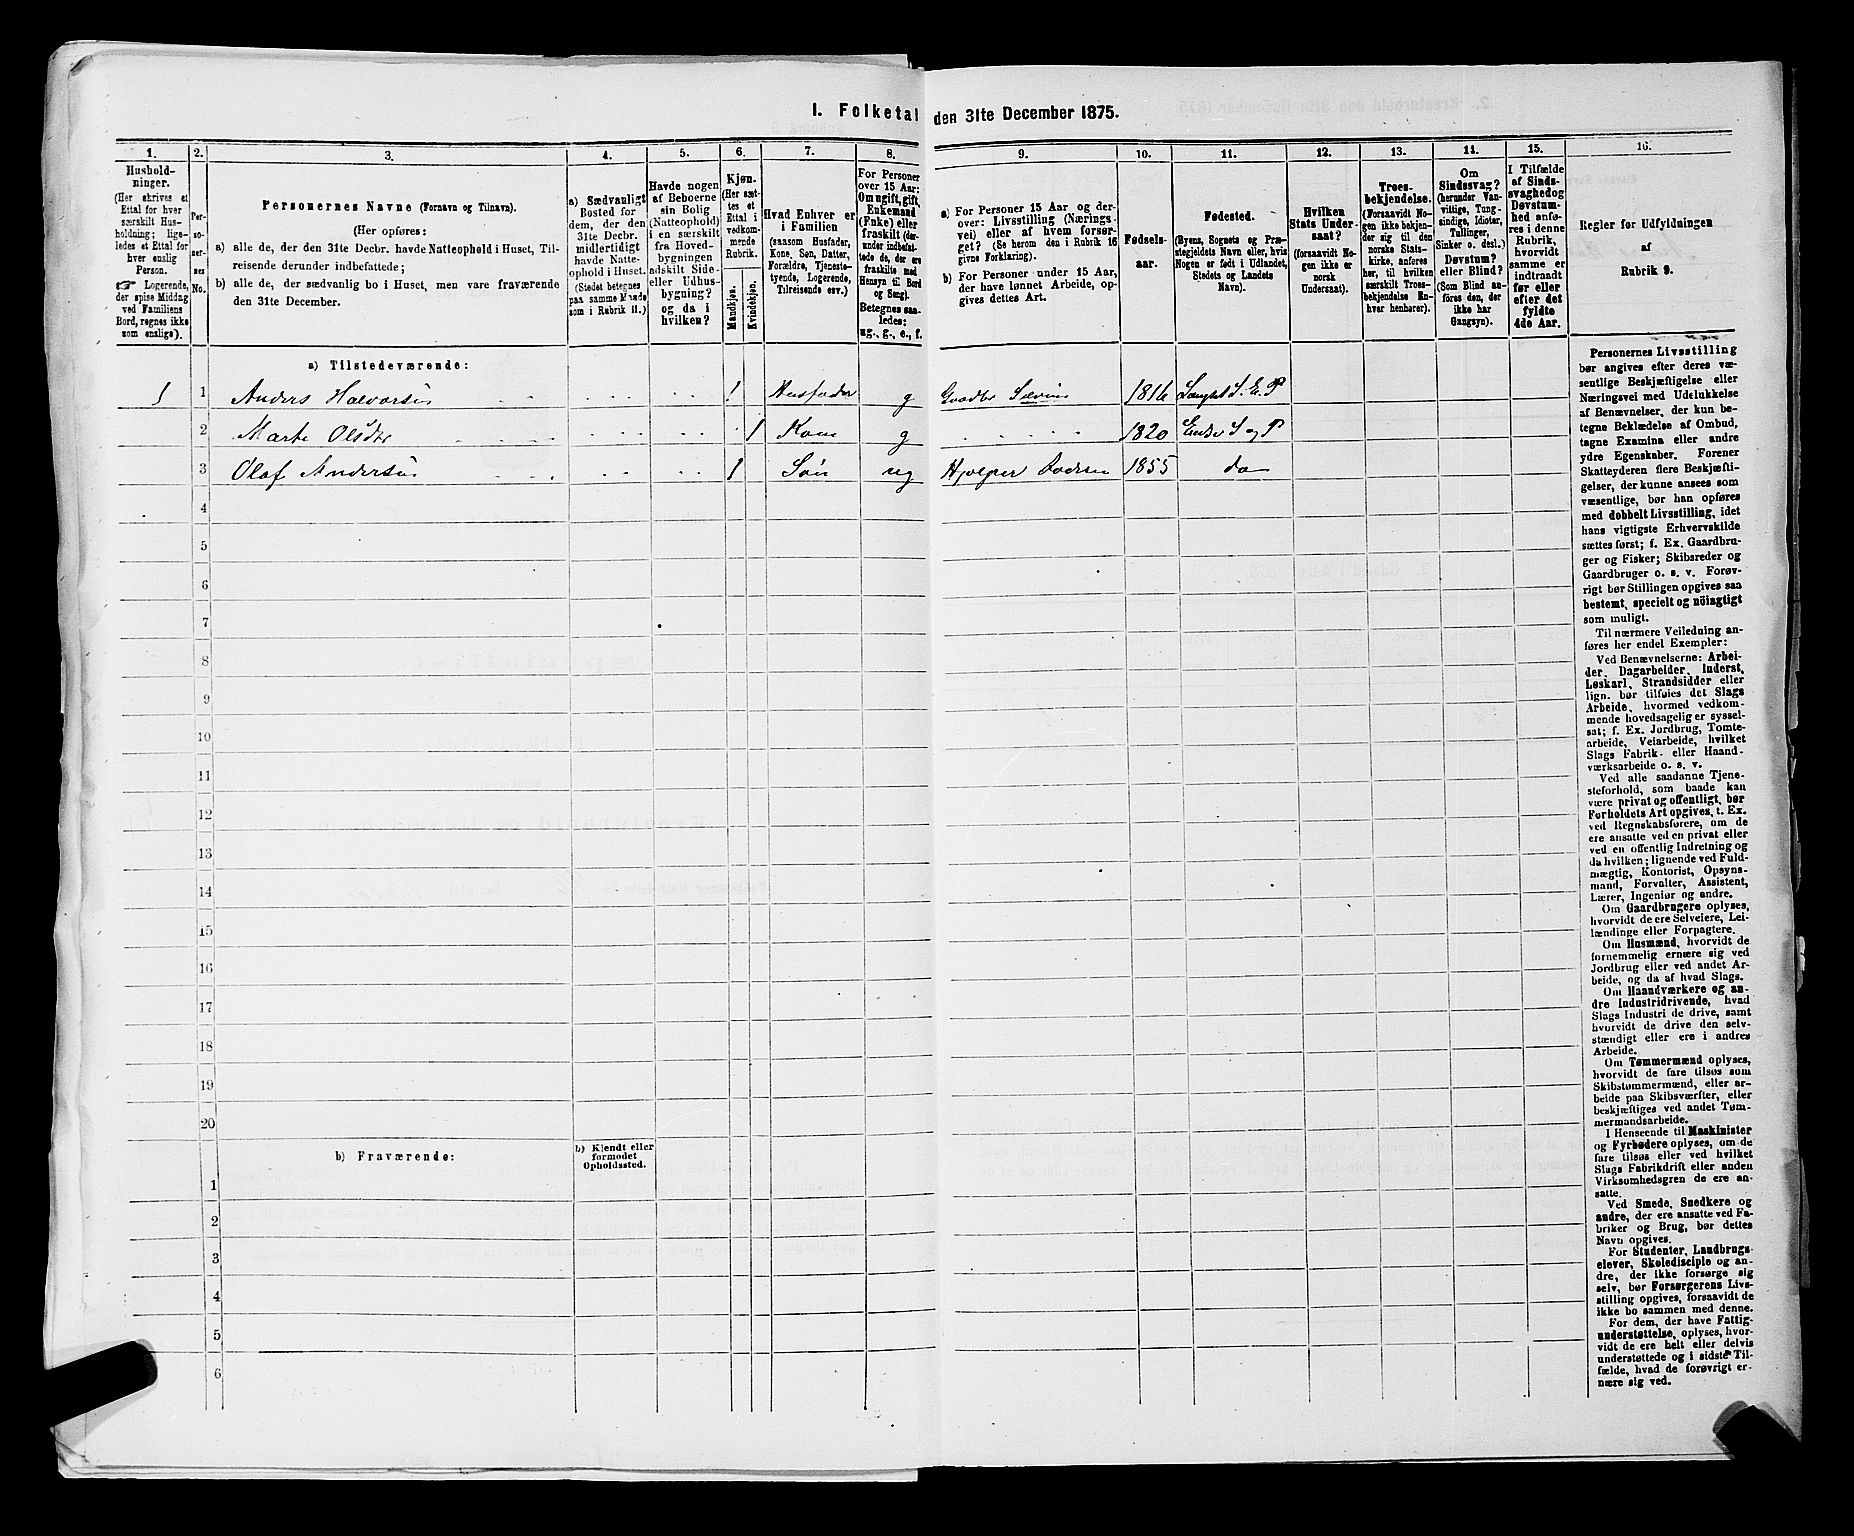 I. Folketal den 31te December 1875.
1. 2. 3. 4. 5. 6. 7. 8. 9. 10. 11. 12. 13. 14. 15. 16.
Husholdninger.
(Her skrives et
Ettal for hver
særskilt Hus-
holdning; lige-
ledes et Ettal for
hver enslig
Person.
☞ Logerende,
der spise Middag
ved Familiens
Bord, regnes ikke
som enslige).
Personernes No.
Personernes Navne (Fornavn og Tilnavn).
(Her opføres:
a) alle de, der den 31te Decbr. havde Natteophold i Huset, Til-
reisende derunder indbefattede;
b) alle de, der sædvanlig bo i Huset, men vare fraværende
den 31te December.
a) Sædvanligt
Bosted for
dem, der den
31te Decbr.
midlertidigt
havde Natte-
ophold i Huset.
(Stedet betegnes
paa samme Maade
som i Rubrik 11.)
Havde nogen
af Beboerne
sin Bolig
(Natteophold)
i en særskilt
fra Hoved-
bygningen
adskilt Side-
eller Udhus-
bygning?
og da i
hvilken?
Kjøn.
(Her sæt-
tes et
Ettal i
vedkom-
mende
Rubrik.
Mandkjøn.
Kvindekjøn.
Hvad Enhver er
i Familien
(saasom Husfader,
Kone, Søn, Datter,
Forældre, Tjeneste-
tyende, Logerende,
Tilreisende osv.)
For Personer
over 15 Aar:
Om ugift, gift,
Enkemand
(Enke) eller
fraskilt (der-
under indbefat-
tede de, der ere
fraskilte med
Hensyn til Bord
og Seng).
Betegnes saa-
ledes:
ug., g., e., f.
a) For Personer 15 Aar og der-
over: Livsstilling (Nærings-
vei) eller af hvem forsør-
get? (Se herom den i Rubrik 16
givne Forklaring).
b) For Personer under 15 Aar,
der have lønnet Arbeide, op-
gives dettes Art.
Fødsels-
aar.
Fødested.
(Byens, Sognets og Præ-
stegjeldets Navn eller, hvis
Nogen er født i Udlandet,
Stedets og Landets
Navn).
Hvilken
Stats Under-
saat?
(forsaavidt No-
gen ikke er
norsk
Undersaat).
Troes-
bekjendelse.
(Forsaavidt No-
gen ikke bekjen-
der sig til den
norske Stats-
kirke, anføres
her, til hvilken
særskilt Troes-
bekjendelse En-
hver henhører).
Om
Sindssvag?
(herunder Van-
vittige, Tung-
sindige, Idioter,
Tullinger,
Sinker o. desl.)
Døvstum?
eller Blind?
(Som Blind an-
føres den, der
ikke har
Gangsyn).
I Tilfælde
af Sinds-
svaghed og
Døvstum-
hed anfø-
res i denne
Rubrik,
hvorvidt
samme er
indtraadt
før eller
efter det
fyldte
4de Aar.
Regler for Udfyldningen
af
Rubrik 9.
a) Tilstedeværende:
1 1 Anders Halvorsen 1 Husfader g Gaadbr Selveier 1816 P
2 Marte Olsdtr 1 Kone g 1820 S og P
3 Olaf Andersen 1 Søn ug Hjelper Faderen 1855 do
4
5
6
7
8
9
10
11
12
13
14
15
16
17
18
19
20
b) Fraværende:
b) Kjendt eller
formodet
Opholdssted.
1
2
3
4
5
6
Personernes Livsstilling
bør angives efter deres væ-
sentlige Beskjæftigelse eller
Næringsvei med Udelukkelse
af Benævnelser, der kun be-
tegne Beklædelse af Ombud,
tagne Examina eller andre
ydre Egenskaber. Forener
Skatteyderen flere Beskjæfti-
gelser, der kunne ansees som
væsentlige, bør han opføres
med dobbelt Livsstilling, idet
hans vigtigste Erhvervskilde
sættes først; f. Ex. Gaardbru-
ger og Fisker; Skibsreder og
Gaardbruger o. s. v. Forøv-
rigt bør Stillingen opgives saa
bestemt, specielt og nöiagtigt
som muligt.
Til nærmere Veiledning an-
føres her endel Exempler:
Ved Benævnelserne: Arbei-
der, Dagarbeider, Inderst,
Løskarl, Strandsidder eller
lign. bør tilføies det Slags
Arbeide, hvormed vedkom-
mende hovedsagelig er syssel-
sat; f. Ex. Jordbrug, Tomte-
arbeide, Veiarbeide, hvilket
Slags Fabrik- eller Haand-
værksarbeide o. s. v.
Ved alle saadanne Tjene-
steforhold, som baade kan
være privat og offentligt, bør
Forholdets Art opgives, t. Ex.
ved Regnskabsførere, om de
ere ansatte ved en privat eller
ved en offentlig Indretning og
da hvilken; lignende ved Fuld-
mægtig, Kontorist, Opsyns-
mand, Forvalter, Assistent,
Lærer, Ingeniør og andre.
Om Gaardbrugere oplyses,
hvorvidt de ere Selveiere, Lei-
lændinge eller Forpagtere.
Om Husmænd, hvorvidt de
fornemmelig ernære sig ved
Jordbrug eller ved andet Ar-
beide, og da af hvad Slags.
Om Haandværkere og an-
dre Industridrivende, hvad
Slags Industri de drive, samt
hvorvidt de drive den selv-
stændigt eller ere i andres
Arbeide.
Om Tømmermænd oplyses,
hvorvidt de fare tilsøs som
Skibstømmermænd, eller ar-
beide paa Skibsværfter, eller
beskjæftiges ved andet Tøm-
mermandsarbeide.
I Henseende til Maskinister
og Fyrbødere oplyses, om de
fare tilsøs eller ved hvilket
Slags Fabrikdrift eller anden
Virksomhedsgren de ere an-
satte.
Ved Smede, Snedkere og
andre, der ere ansatte ved Fa-
briker og Brug, bør dettes
Navn opgives.
For Studenter, Landbrugs-
elever, Skoledisciple og an-
dre, der ikke forsørge sig
selv, bør Forsørgerens Livs-
stilling opgives, forsaavidt de
ikke bo sammen med denne.
For dem, der have Fattig-
understøttelse, oplyses, hvor-
vidt de ere helt eller delvis
understøttede og i sidste Til-
fælde, hvad de forøvrigt er-
nære sig ved.